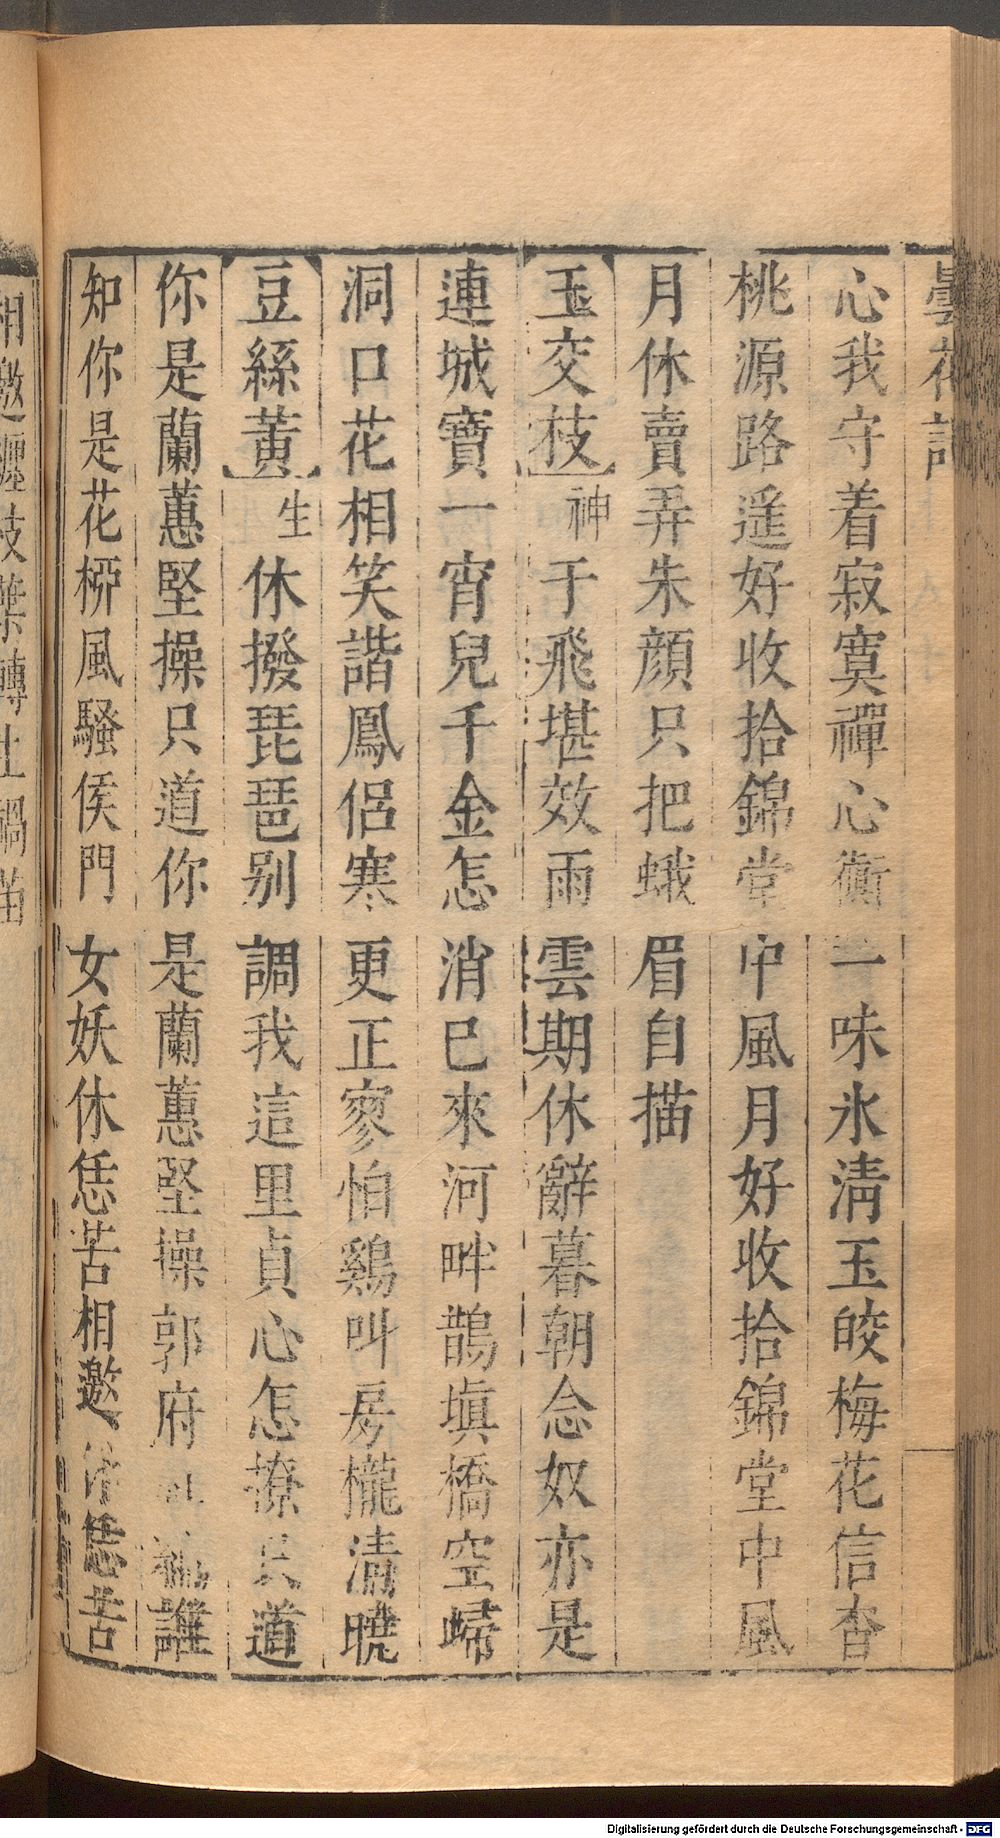 曇花記
心我守着寂寞禪心衡一味氷清玉皎梅花信杳
桃源路遥好收拾錦堂中風月好收拾錦堂中風
月休賣弄朱顔只把蛾眉自描
玉交枝神于飛堪效雨雲期休辭暮朝念奴亦是
連城寶一宵兒千金怎消巳來河畔鵲塡橋空歸
洞口花相笑諧鳳侶寒更正寥怕鷄叫房櫳清曉
豆絲黄生休撥琵琶别調我這里貞心怎撩只道
你是蘭蕙堅操只道你是蘭蕙堅操郭府誰
知你是花桺風騷侯門女妖休恁苦相邀休恁苦
相邀枝葉轉
Digitalisierung gefördert durch die Deutsche Forschungsgemeinschaft - DFG